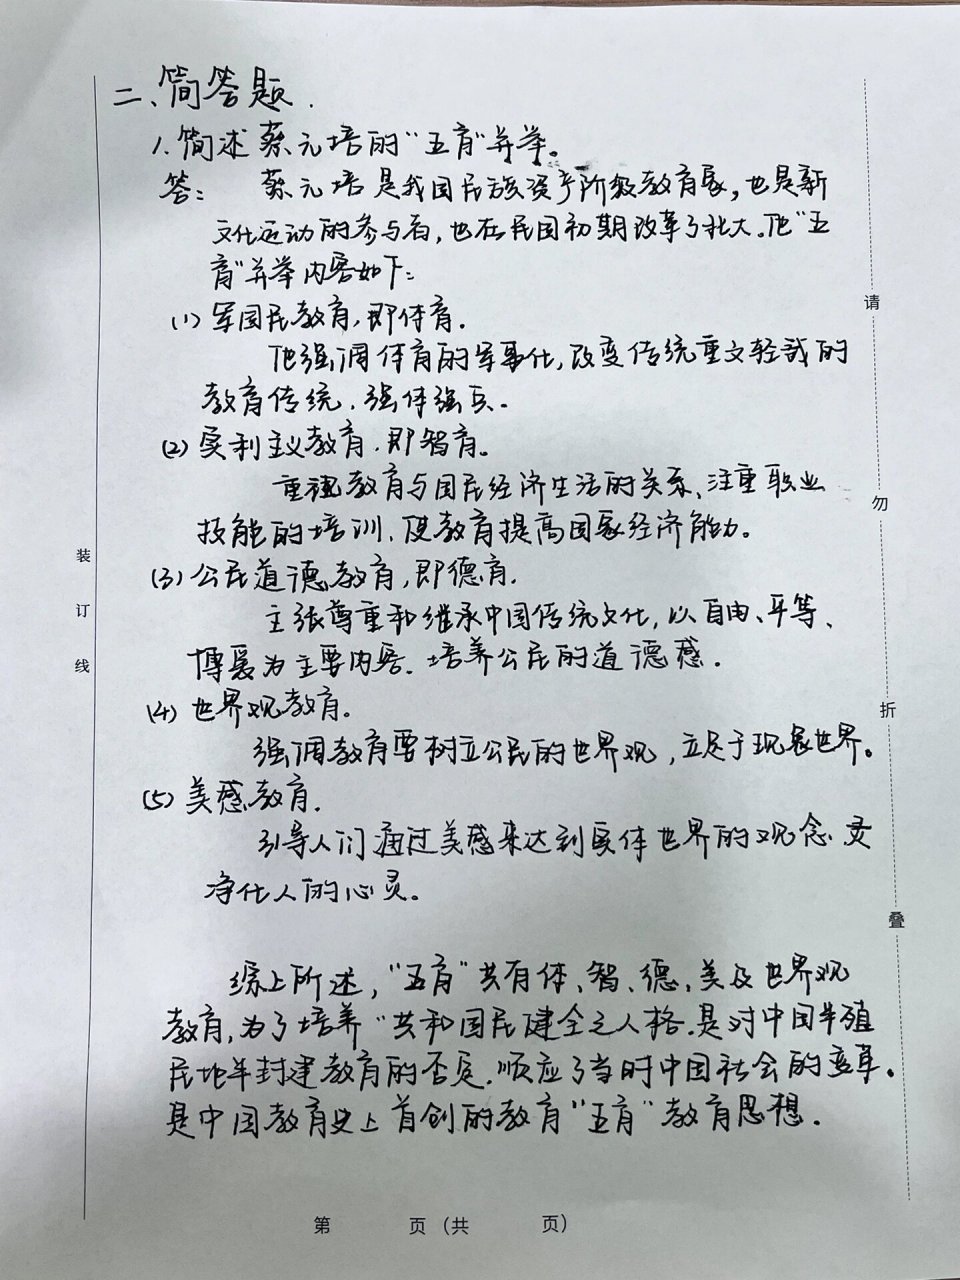 二、简答题.
1.简述蔡元培的“五育”并举。
答： 蔡元培是我国民族资产阶级教育家，也是新
文化运动的参与者，也在民国初期改革了北大。他“五
育”并举内容如下：
(1) 军国民教育，即体育.
他强调体育的军事化，改变传统重文轻武的
教育传统，强体强兵。
(2) 实利主义教育，即智育。
重视教育与国民经济生活的关系、注重职业
技能的培训、使教育提高国家经济能力。
(3) 公民道德教育，即德育.
主张尊重和继承中国传统文化，以自由、平等、
博爱为主要内容、培养公民的道德感.
(4) 世界观教育.
强调教育要树立公民的世界观，立足于现象世界。
(5) 美感教育.
引导人们通过美感来达到实体世界的观念
净化人的心灵。
综上所述，“五育”共有体、智、德、美及世界观
教育，为了培养“共和国民健全之人格，是对中国半殖
民地半封建教育的否定，顺应了当时中国社会的变革。
是中国教育史上首创的教育“五育”教育思想.
请
勿
折
叠
装
订
线
第 页（共 页）